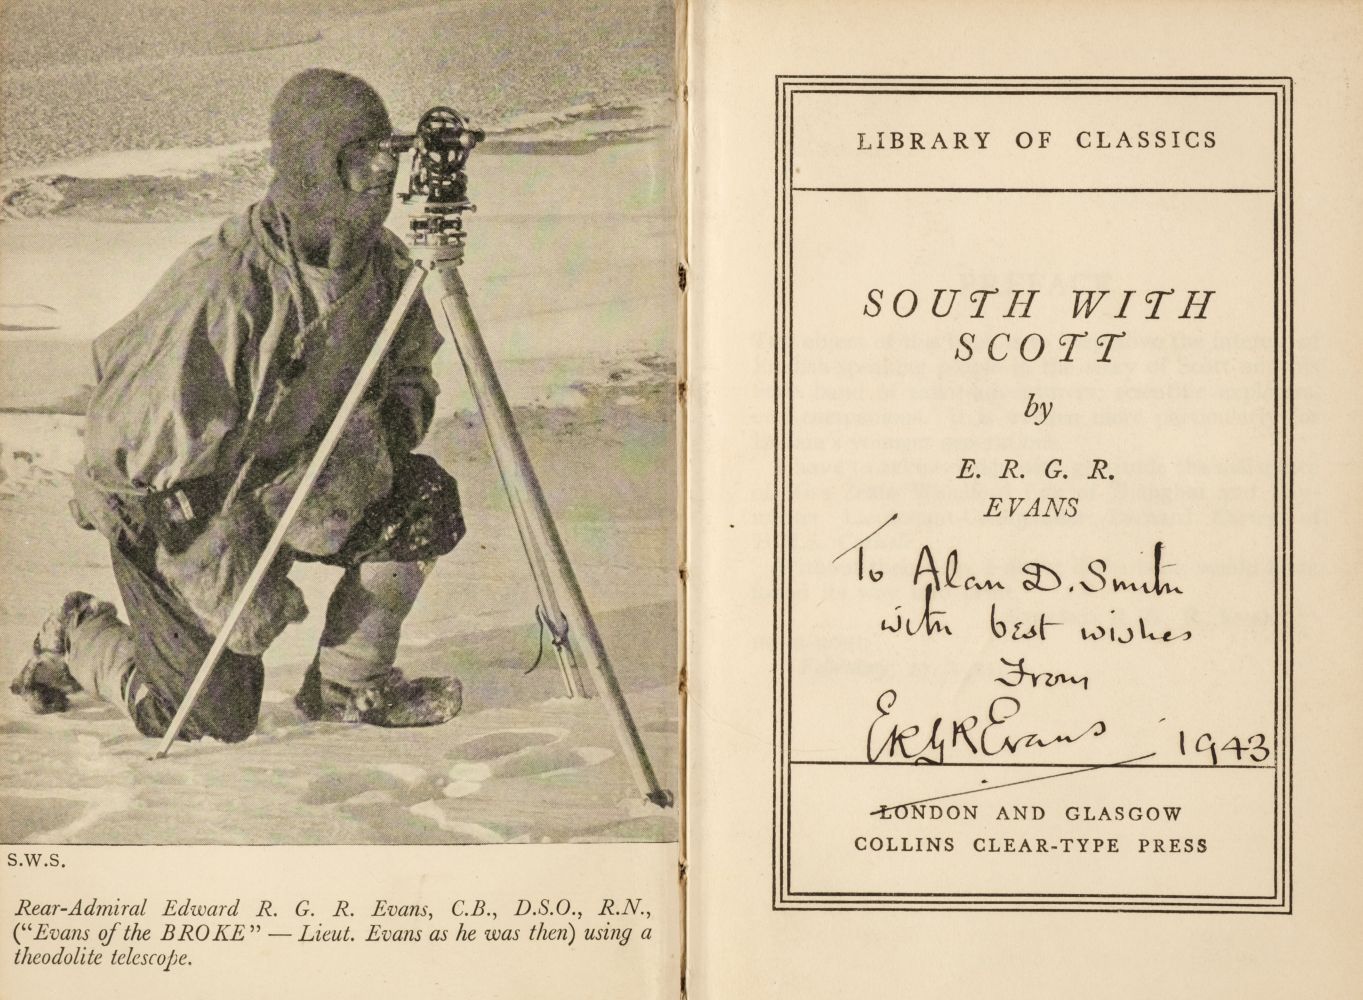 S.W.S.
Rear-Admiral Edward R. G. R. Evans, C.B., D.S.O., R.N.,
("Evans of the BROKE" — Lieut. Evans as he was then) using a
theodolite telescope.
LIBRARY OF CLASSICS
SOUTH WITH
SCOTT
by
E. R. G. R.
EVANS
To Alan D. Smith
with best wishes
From
ERGR Evans 1943
LONDON AND GLASGOW
COLLINS CLEAR-TYPE PRESS